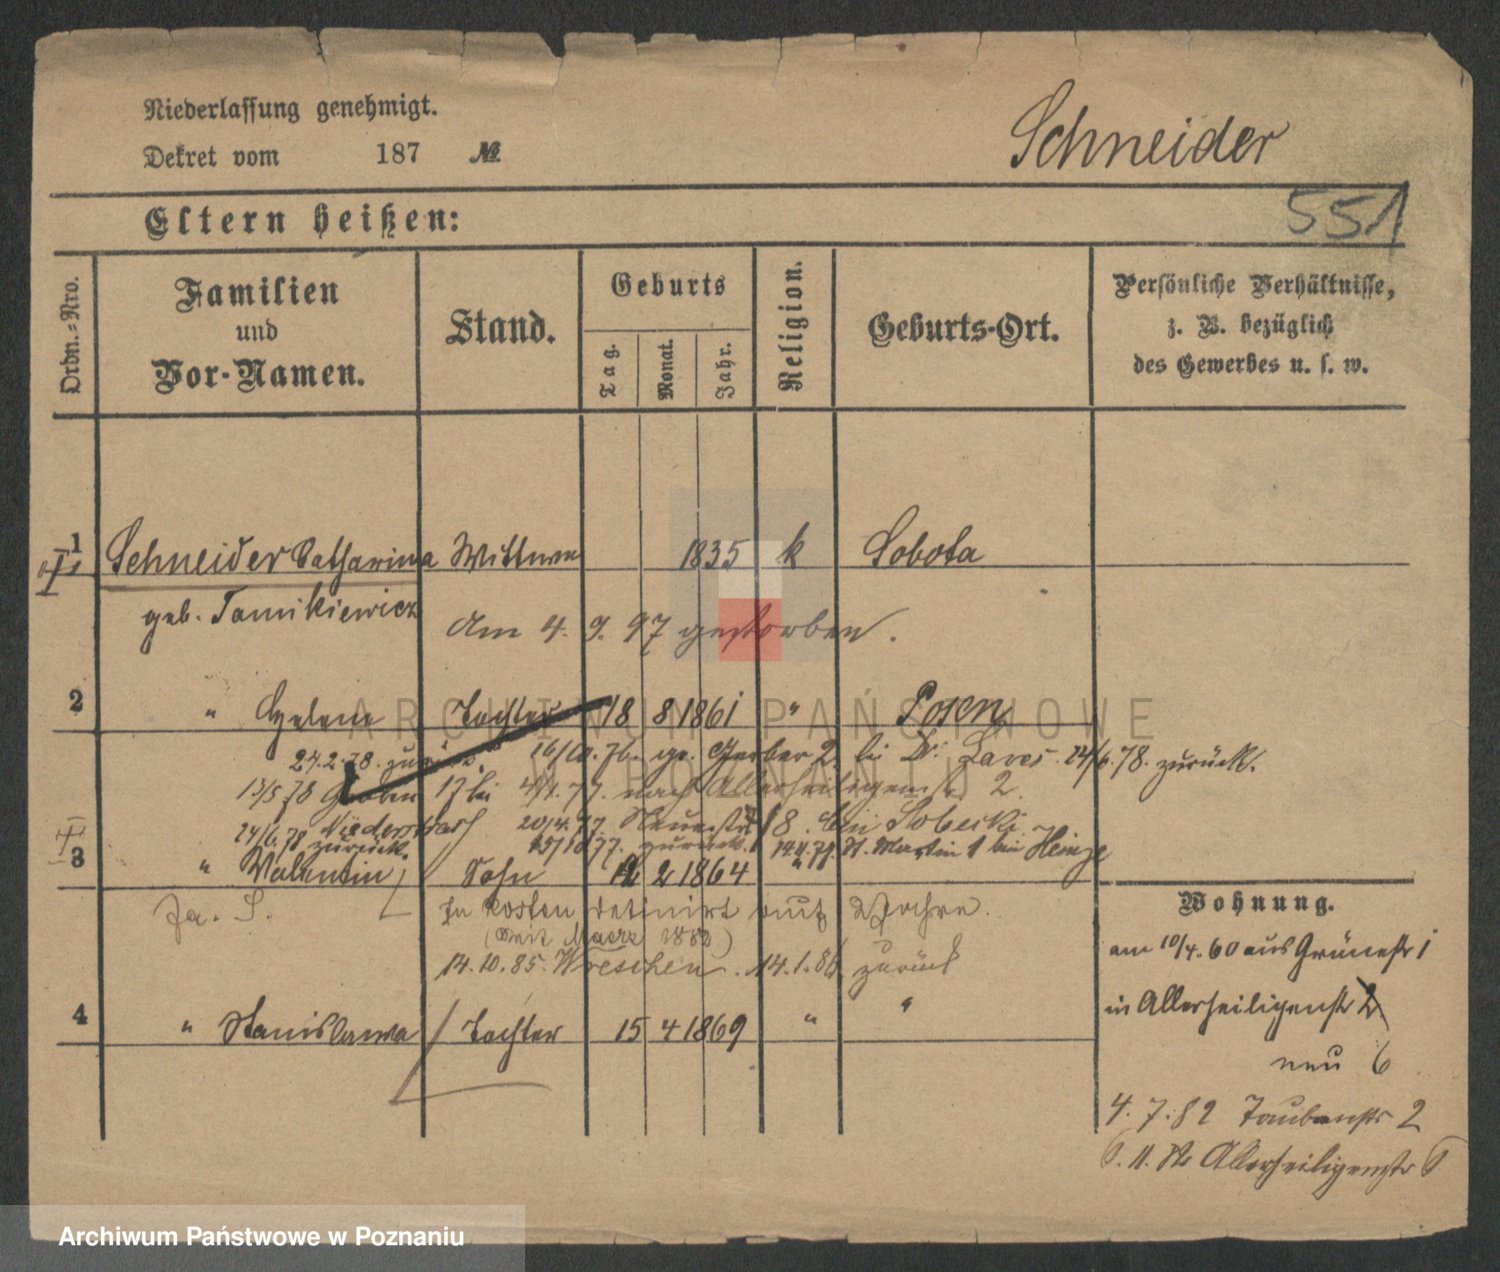 Niederlassung genehmigt.
Dekret vom 187 №
Schneider
551
Eltern heißen:
Ordn.=Nro.
Familien
und
Vor-Namen.
Stand.
Geburts
Tag.
Monat.
Jahr.
Religion.
Geburts-Ort.
Persönliche Verhältnisse,
z. B. bezüglich
des Gewerbes u. s. w.
1 Schneider Catharina Wittwe 1835 k Sobota
geb. Tomikiewicz
Am 4. 9. 97 gestorben.
2 " Helene Tochter 18 8 1861 " Posen
27.2.78. zurück. 16/10.76. gr. Gerber 2. bei Dr. Laves. 24/6.78. zurück.
13/5 78 Graben 17 bei 4/1.77. nach Allerheiligenstr 2.
24/6.78 zurück. 20/4.77. Neuestr 8. bei Sobecki
15/10 77. zurück. St. Martin 1 bei Heinze
3 " Valentin Sohn 12 2 1864 "
In Kosten detinirt auf 2 Jahre.
(seit Maerz 1882)
14.10.85. Wreschen. 14.1.86 zurück
4 " Stanislawa Tochter 15 4 1869 " "
Wohnung.
am 10/4.60 aus Grünestr 1
in Allerheiligenstr 2
neu 6
4. 7. 82 Taubenstr 2
6. 11. 82 Allerheiligenstr 6
ARCHIWUM PAŃSTWOWE
W POZNANIU
Archiwum Państwowe w Poznaniu